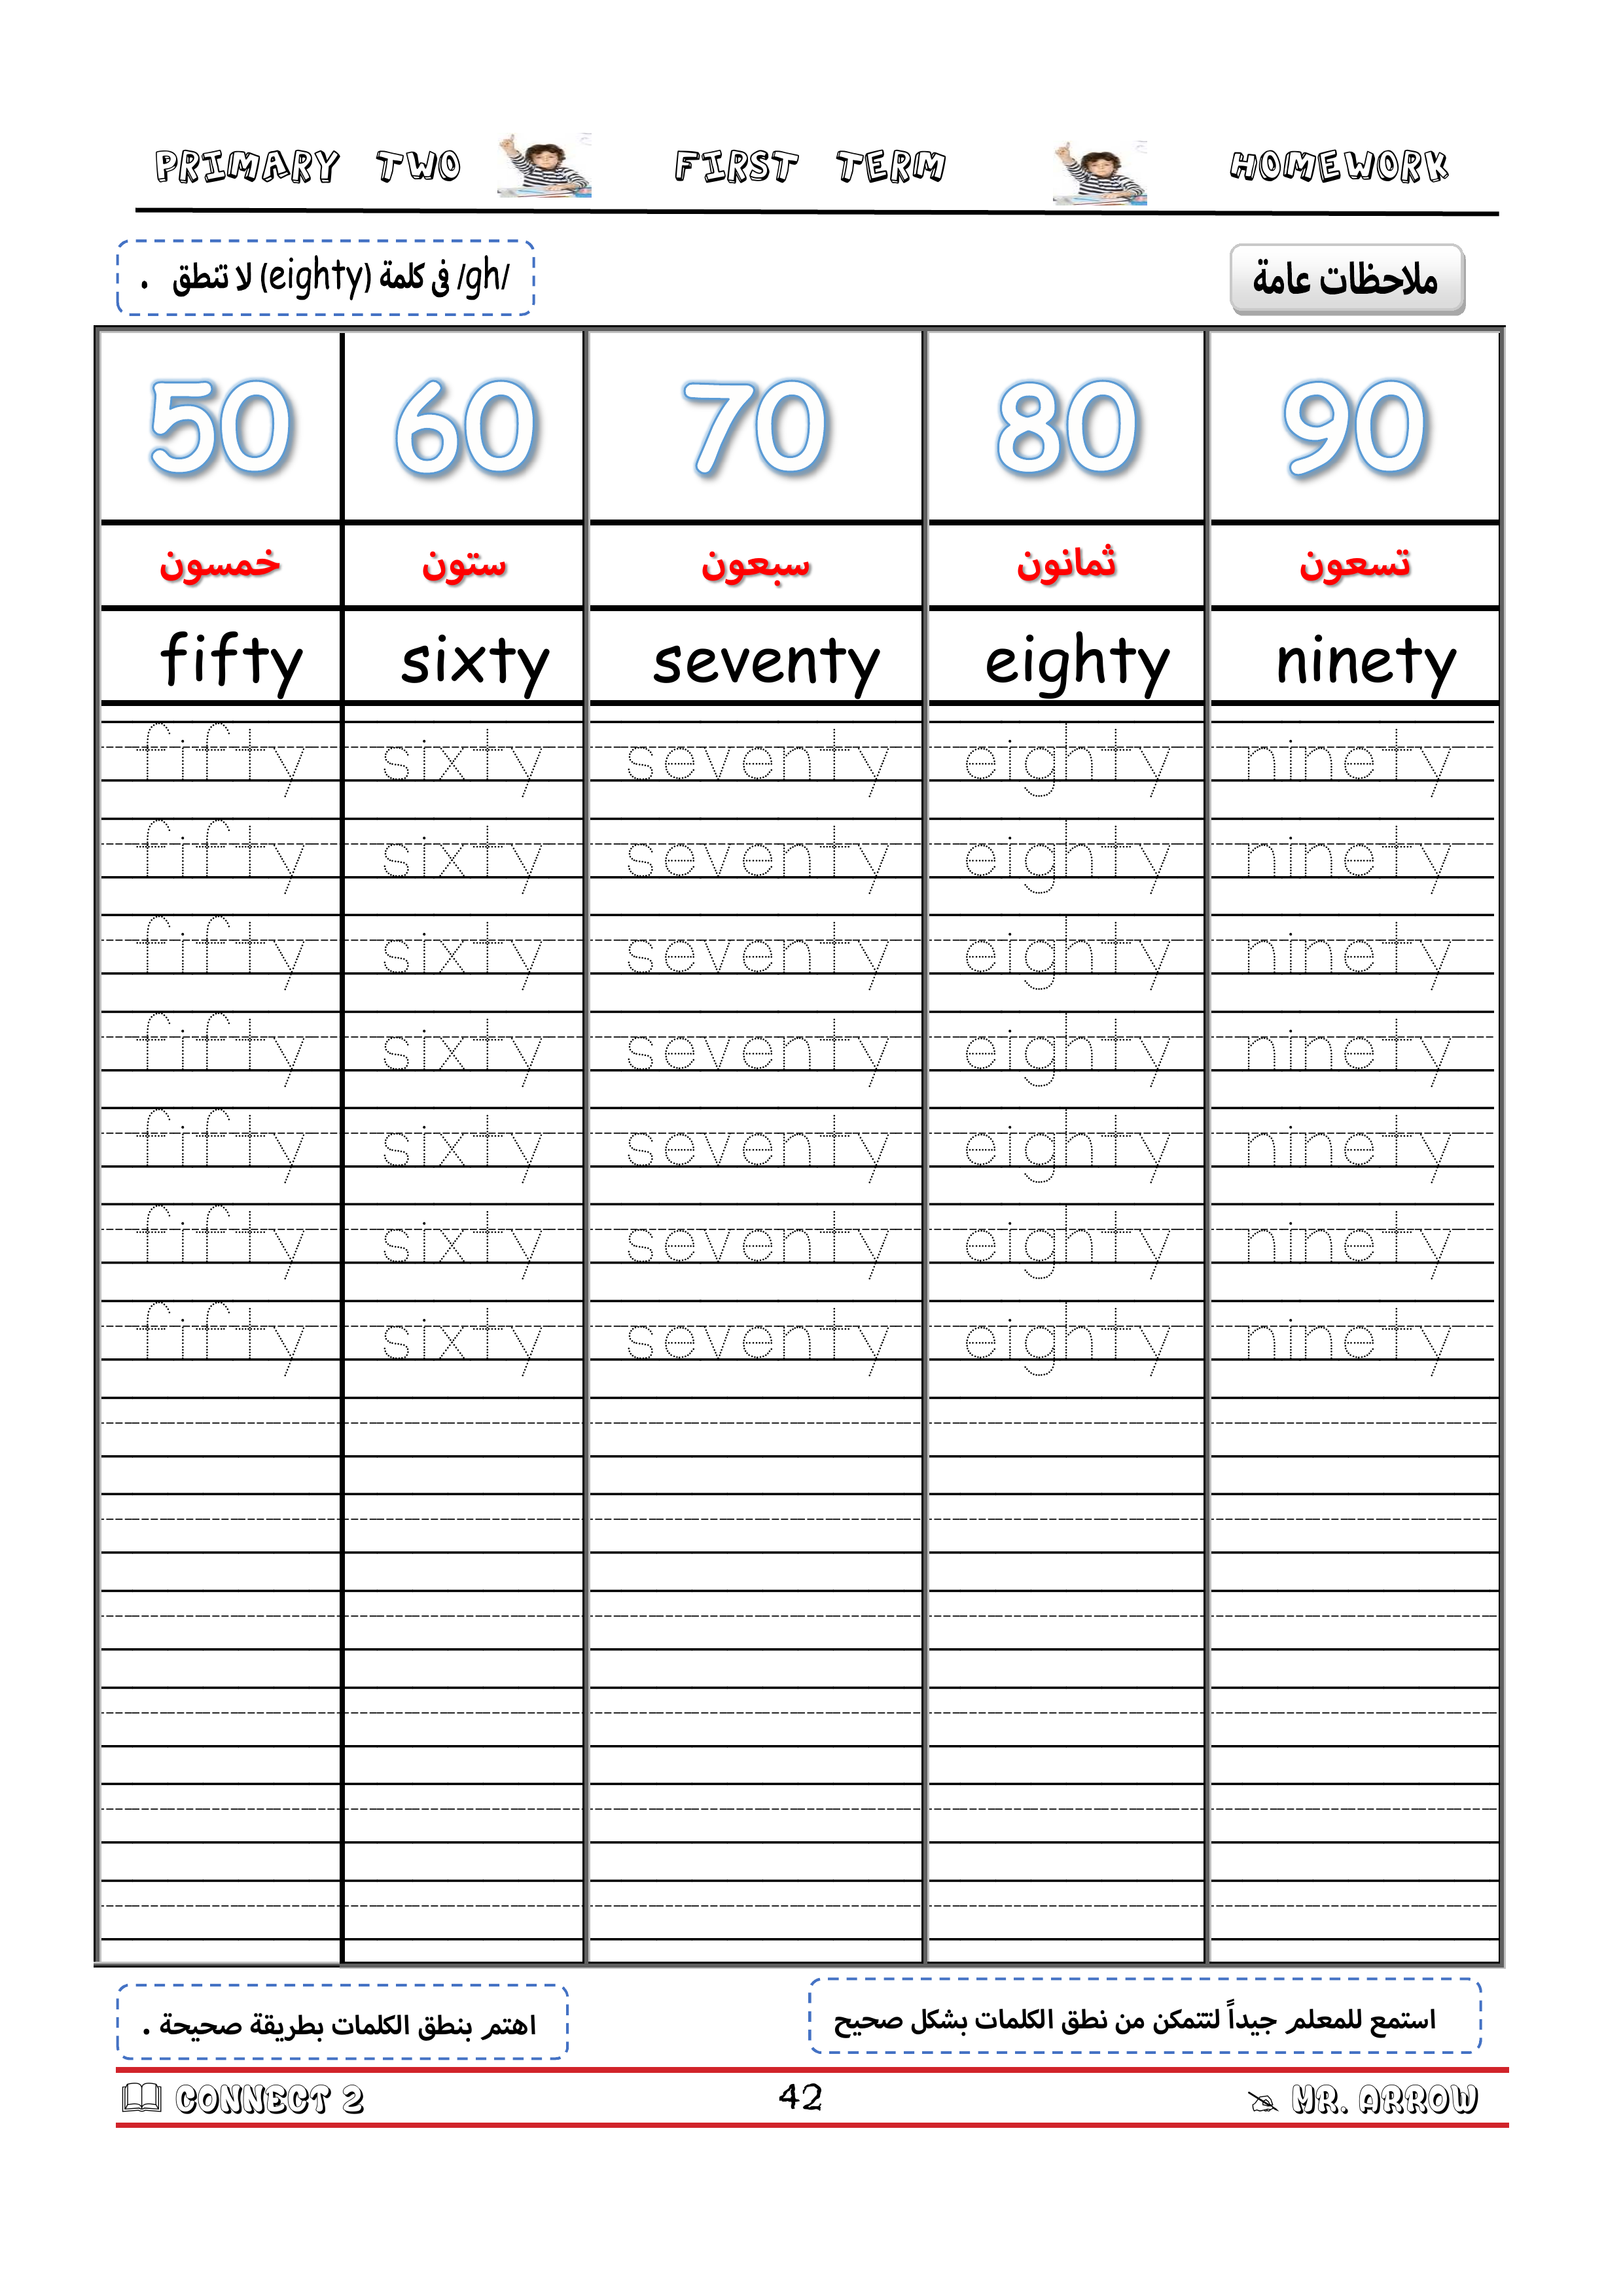 PRIMARY TWO FIRST TERM HOMEWORK
ملاحظات عامة
/gh/ فى كلمة (eighty) لا تنطق .
50 60 70 80 90
خمسون ستون سبعون ثمانون تسعون
fifty sixty seventy eighty ninety
fifty sixty seventy eighty ninety
fifty sixty seventy eighty ninety
fifty sixty seventy eighty ninety
fifty sixty seventy eighty ninety
fifty sixty seventy eighty ninety
fifty sixty seventy eighty ninety
fifty sixty seventy eighty ninety
استمع للمعلم جيداً لتتمكن من نطق الكلمات بشكل صحيح
اهتم بنطق الكلمات بطريقة صحيحة .
CONNECT 2 42 MR. ARROW